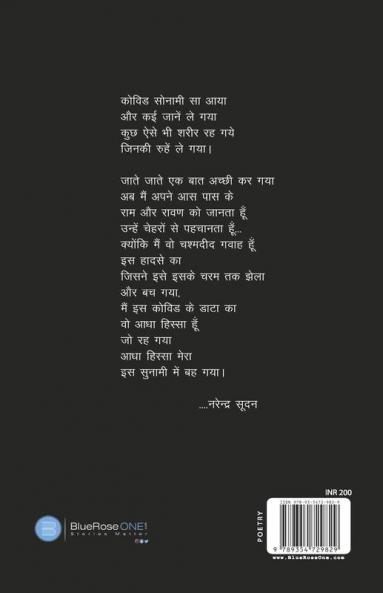 कोविड सोनामी सा आया
और कई जानें ले गया
कुछ ऐसे भी शरीर रह गये
जिनकी रुहें ले गया।
जाते जाते एक बात अच्छी कर गया
अब मैं अपने आस पास के
राम और रावण को जानता हूँ
उन्हें चेहरों से पहचानता हूँ...
क्योंकि मैं वो चश्मदीद गवाह हूँ
इस हादसे का
जिसने इसे इसके चरम तक झेला
और बच गया,
मैं इस कोविड के डाटा का
वो आधा हिस्सा हूँ
जो रह गया
आधा हिस्सा मेरा
इस सुनामी में बह गया।
....नरेन्द्र सूदन
INR 200
POETRY
ISBN 978-93-5472-982-9
9 789354 729829
www.BlueRoseOne.com
BlueRose ONE
Stories Matter